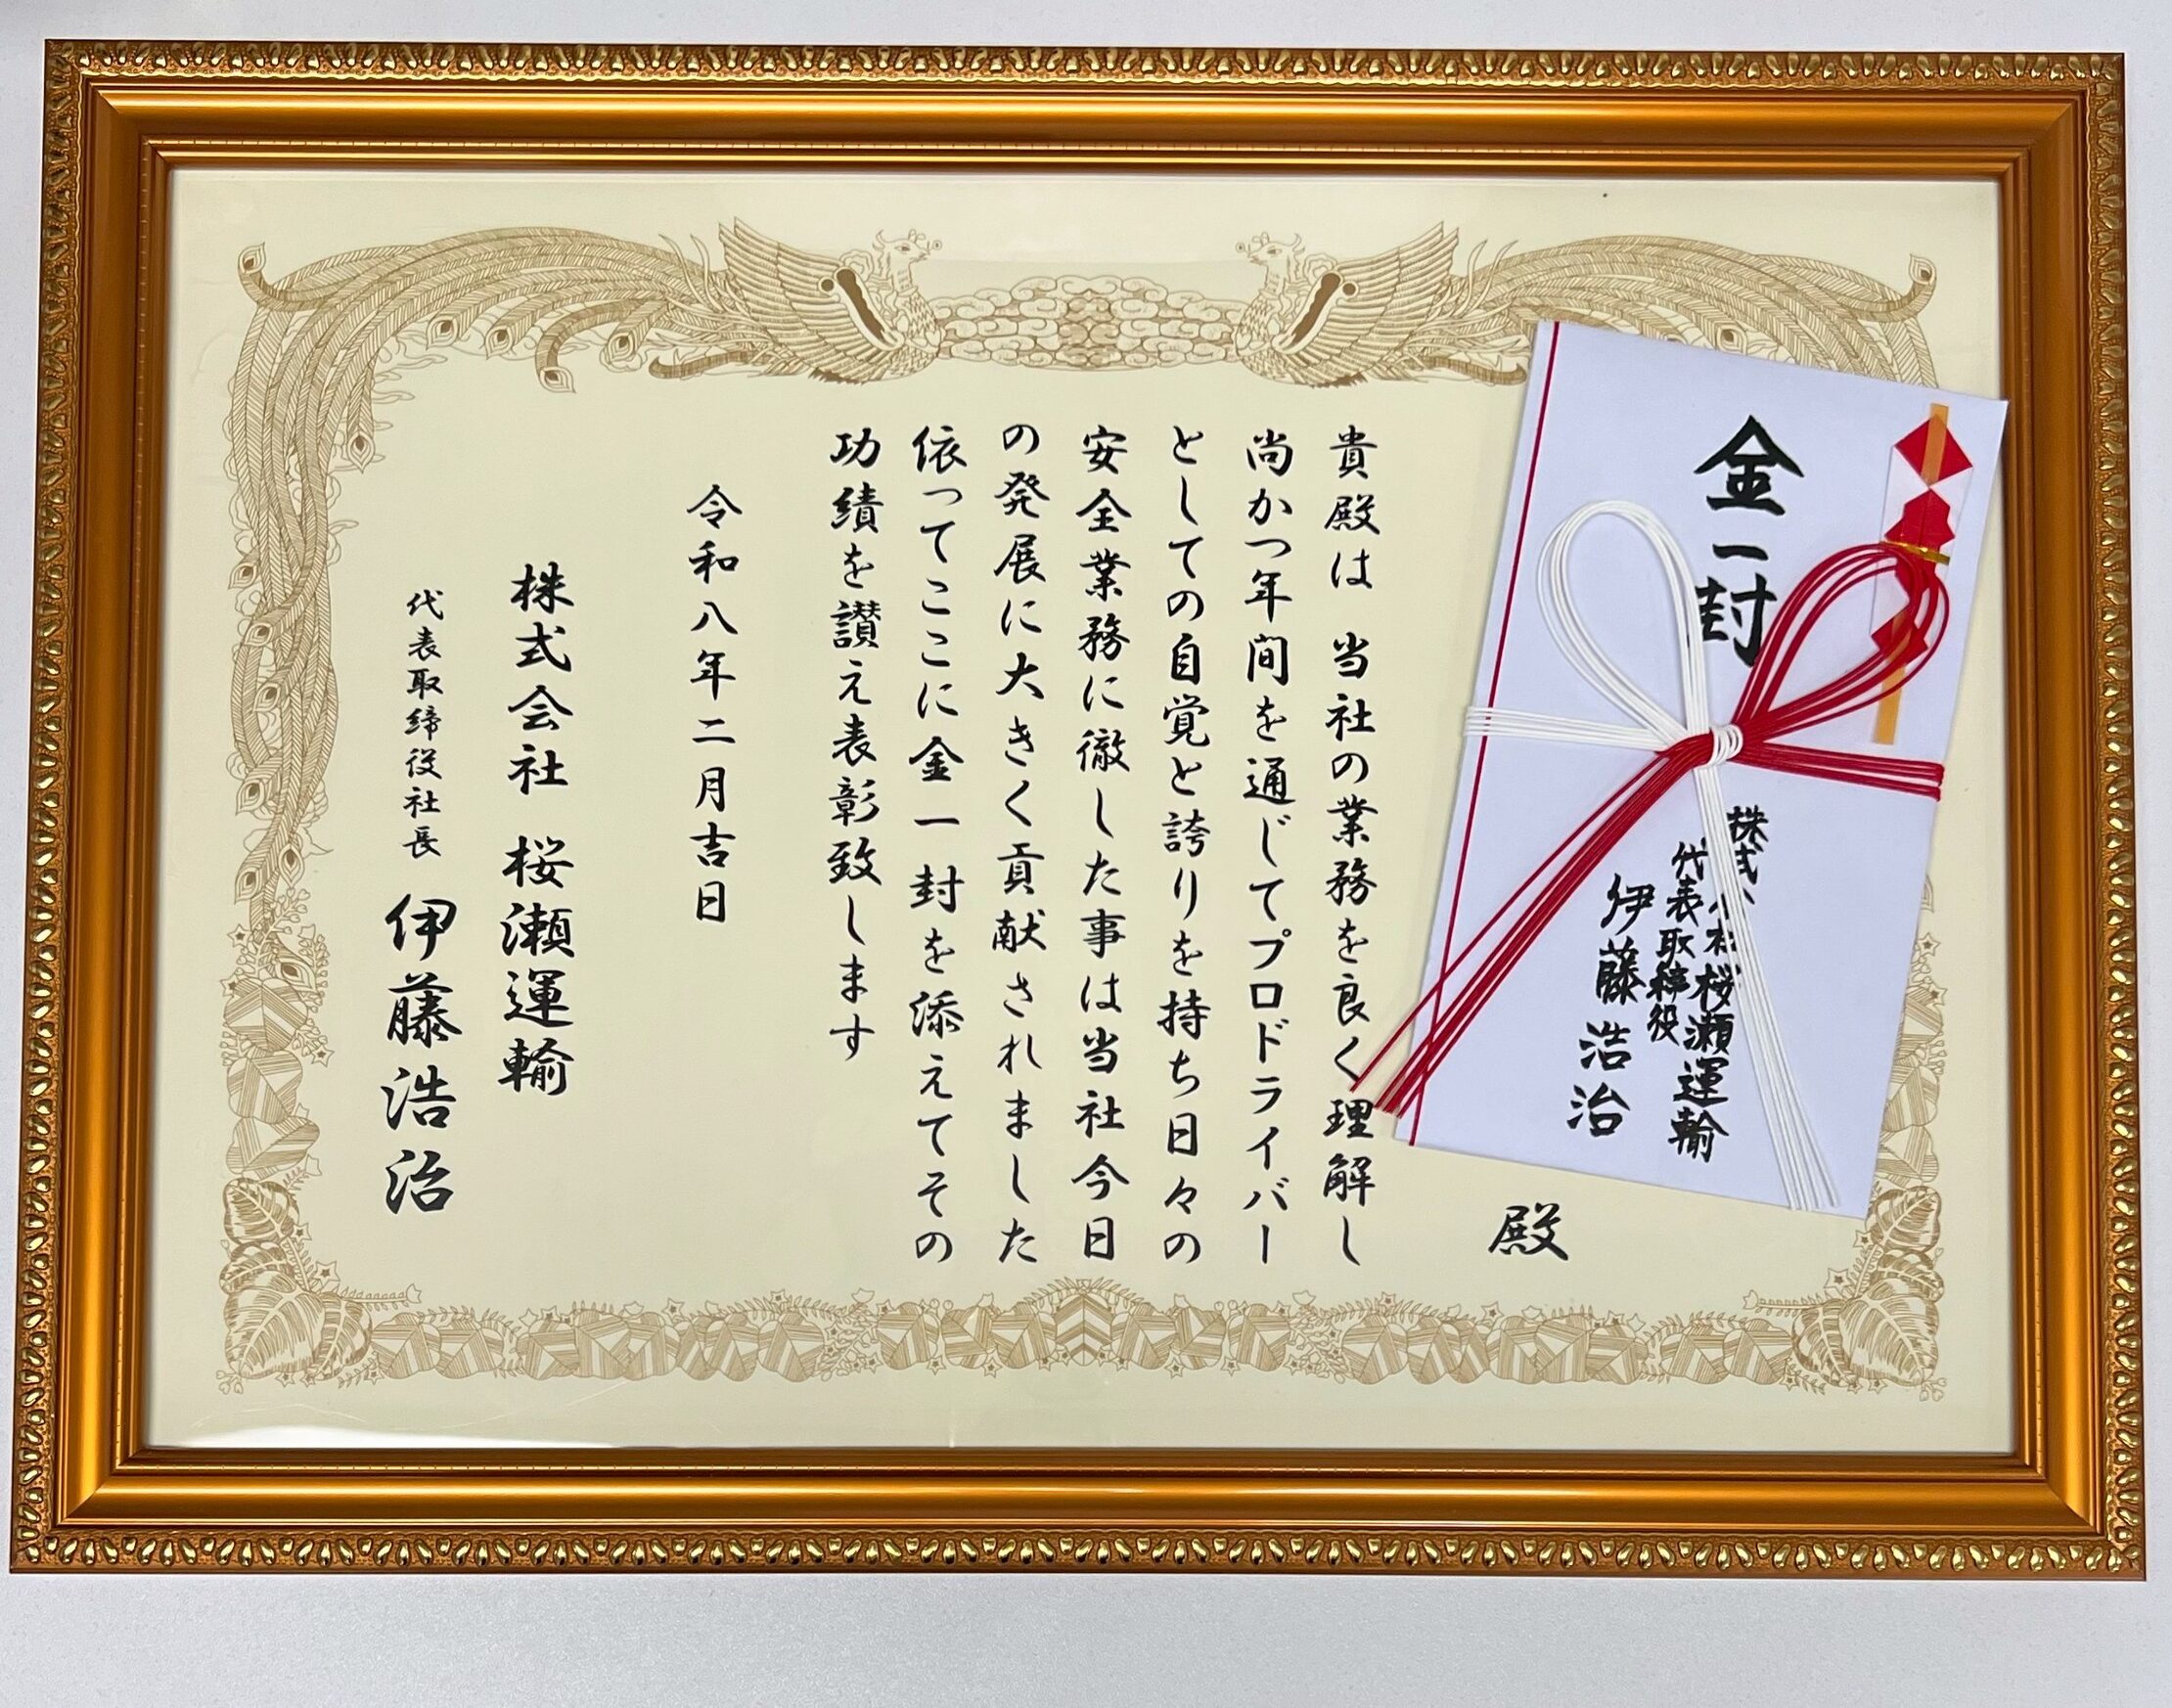 金一封
株式会社桜瀬運輸
代表取締役
伊藤浩治
殿
貴殿は 当社の業務を良く理解し
尚かつ年間を通じてプロドライバー
としての自覚と誇りを持ち日々の
安全業務に徹した事は当社今日
の発展に大きく貢献されました
依ってここに金一封を添えてその
功績を讃え表彰致します
令和八年二月吉日
株式会社 桜瀬運輸
代表取締役社長 伊藤浩治